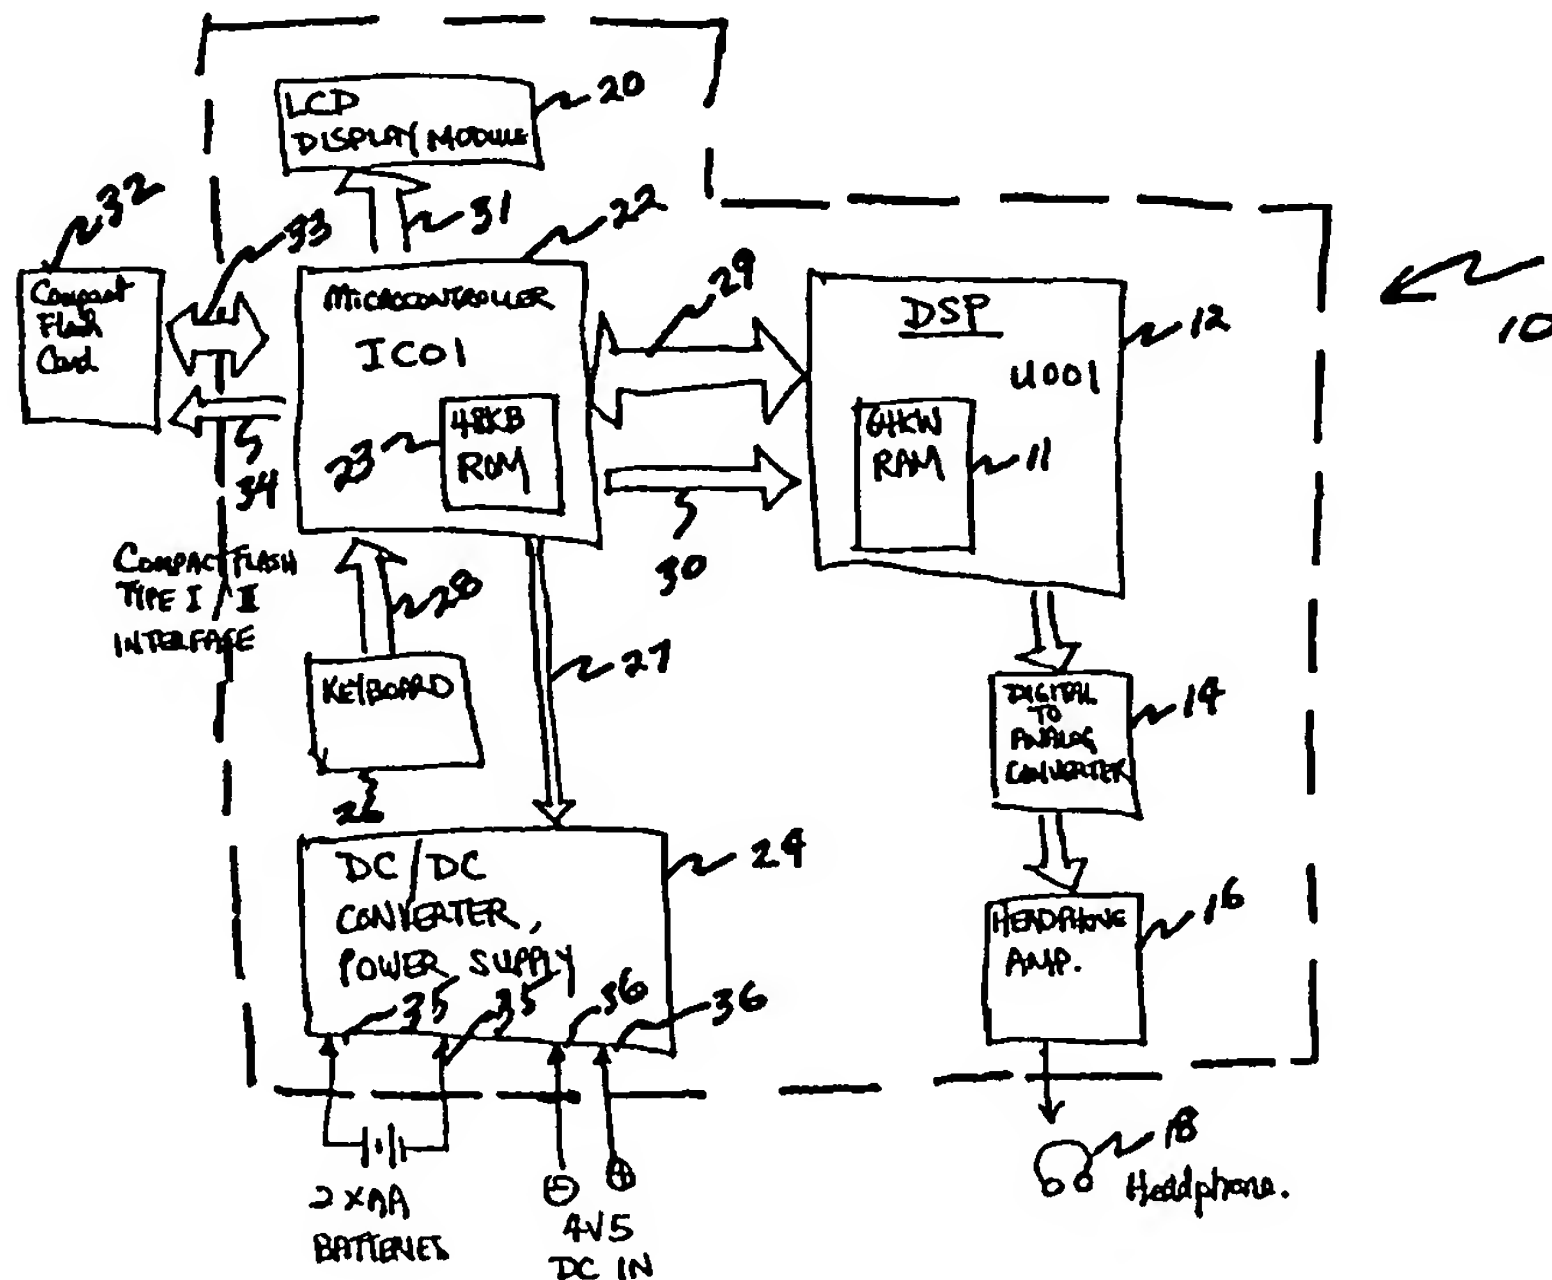 LCD
DISPLAY MODULE
20
32
33
31
22
Compact
Flash
Card
MICROCONTROLLER
IC01
29
DSP
U001
12
10
48KB
ROM
23
64KW
RAM
11
34
30
COMPACT FLASH
TYPE I / II
INTERFACE
28
27
KEYBOARD
26
DIGITAL
TO
ANALOG
CONVERTER
14
DC/DC
CONVERTER,
POWER SUPPLY
24
35 35 36 36
HEADPHONE
AMP.
16
2 x AA
BATTERIES
⊖ ⊕
4V5
DC IN
18
Headphone.